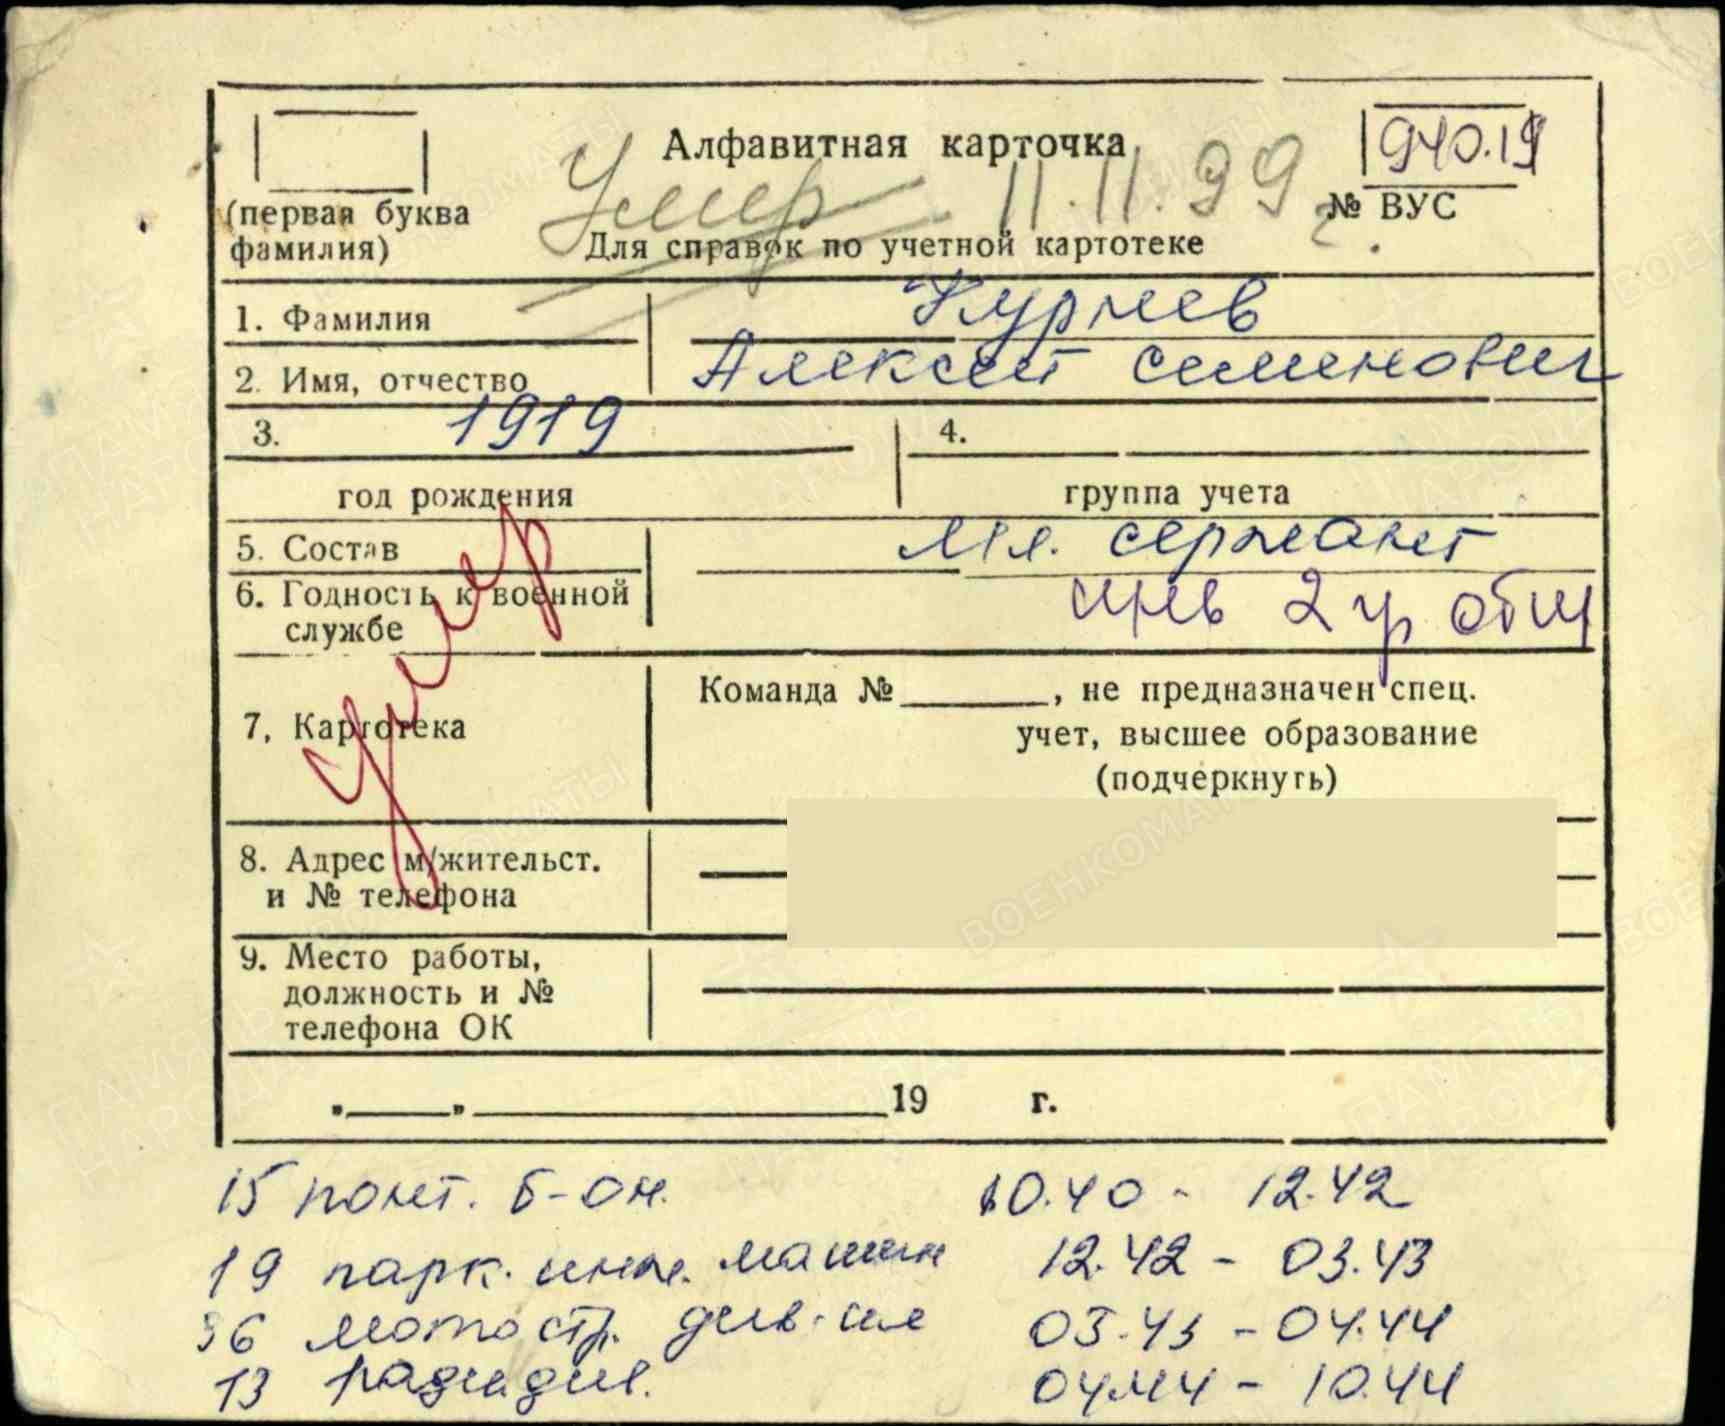 Алфавитная карточка
940.19
Умер 11.11.99 г.
(первая буква
фамилия)
№ ВУС
Для справок по учетной картотеке
1. Фамилия Курнев
2. Имя, отчество Алексей Семенович
3. 1919
4.
год рождения
группа учета
5. Состав Мл. сержант
6. Годность к военной
службе инв 2 гр общ
умер
Команда №______, не предназначен спец.
7, Картотека
учет, высшее образование
(подчеркнуть)
8. Адрес м/жительст.
и № телефона
9. Место работы,
должность и №
телефона ОК
"____"____________19 г.
15 понт. б-он. 10.40 - 12.42
19 парк. инж. машин 12.42 - 03.43
36 мотостр. див-ия 03.43 - 04.44
13 04.44 - 10.44
ПАМЯТЬ
НАРОДА
ВОЕНКОМАТЫ